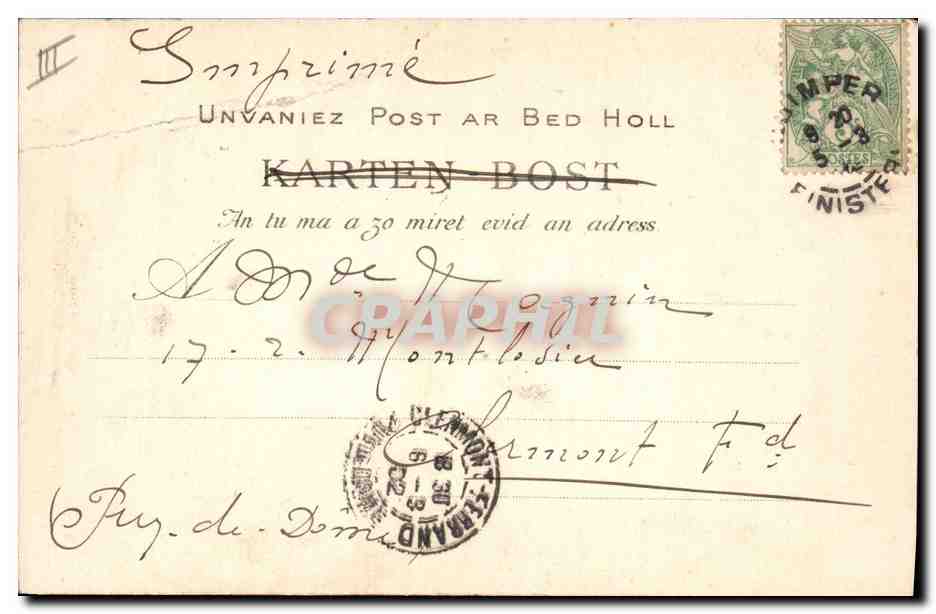 III
Imprimé
UNVANIEZ POST AR BED HOLL
KARTEN-BOST
An tu ma a zo miret evid an adress
POSTES
QUIMPER
FINISTERE
A Mde Magnin
CPARHIL
17 - r. Montlosier
CLERMONT-FERRAND
8 30
6 - 3
02
Clermont Fd
Puy-de-Dôme